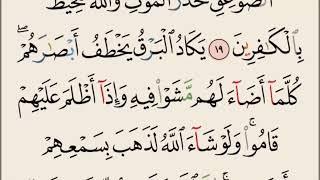 ٱلصَّوَٰعِقِ حَذَرَ ٱلْمَوْتِ وَٱللَّهُ مُحِيطٌۢ
بِٱلْكَٰفِرِينَ ١٩ يَكَادُ ٱلْبَرْقُ يَخْطَفُ أَبْصَٰرَهُمْ ۖ
كُلَّمَآ أَضَآءَ لَهُم مَّشَوْا۟ فِيهِ وَإِذَآ أَظْلَمَ عَلَيْهِمْ
قَامُوا۟ ۚ وَلَوْ شَآءَ ٱللَّهُ لَذَهَبَ بِسَمْعِهِمْ